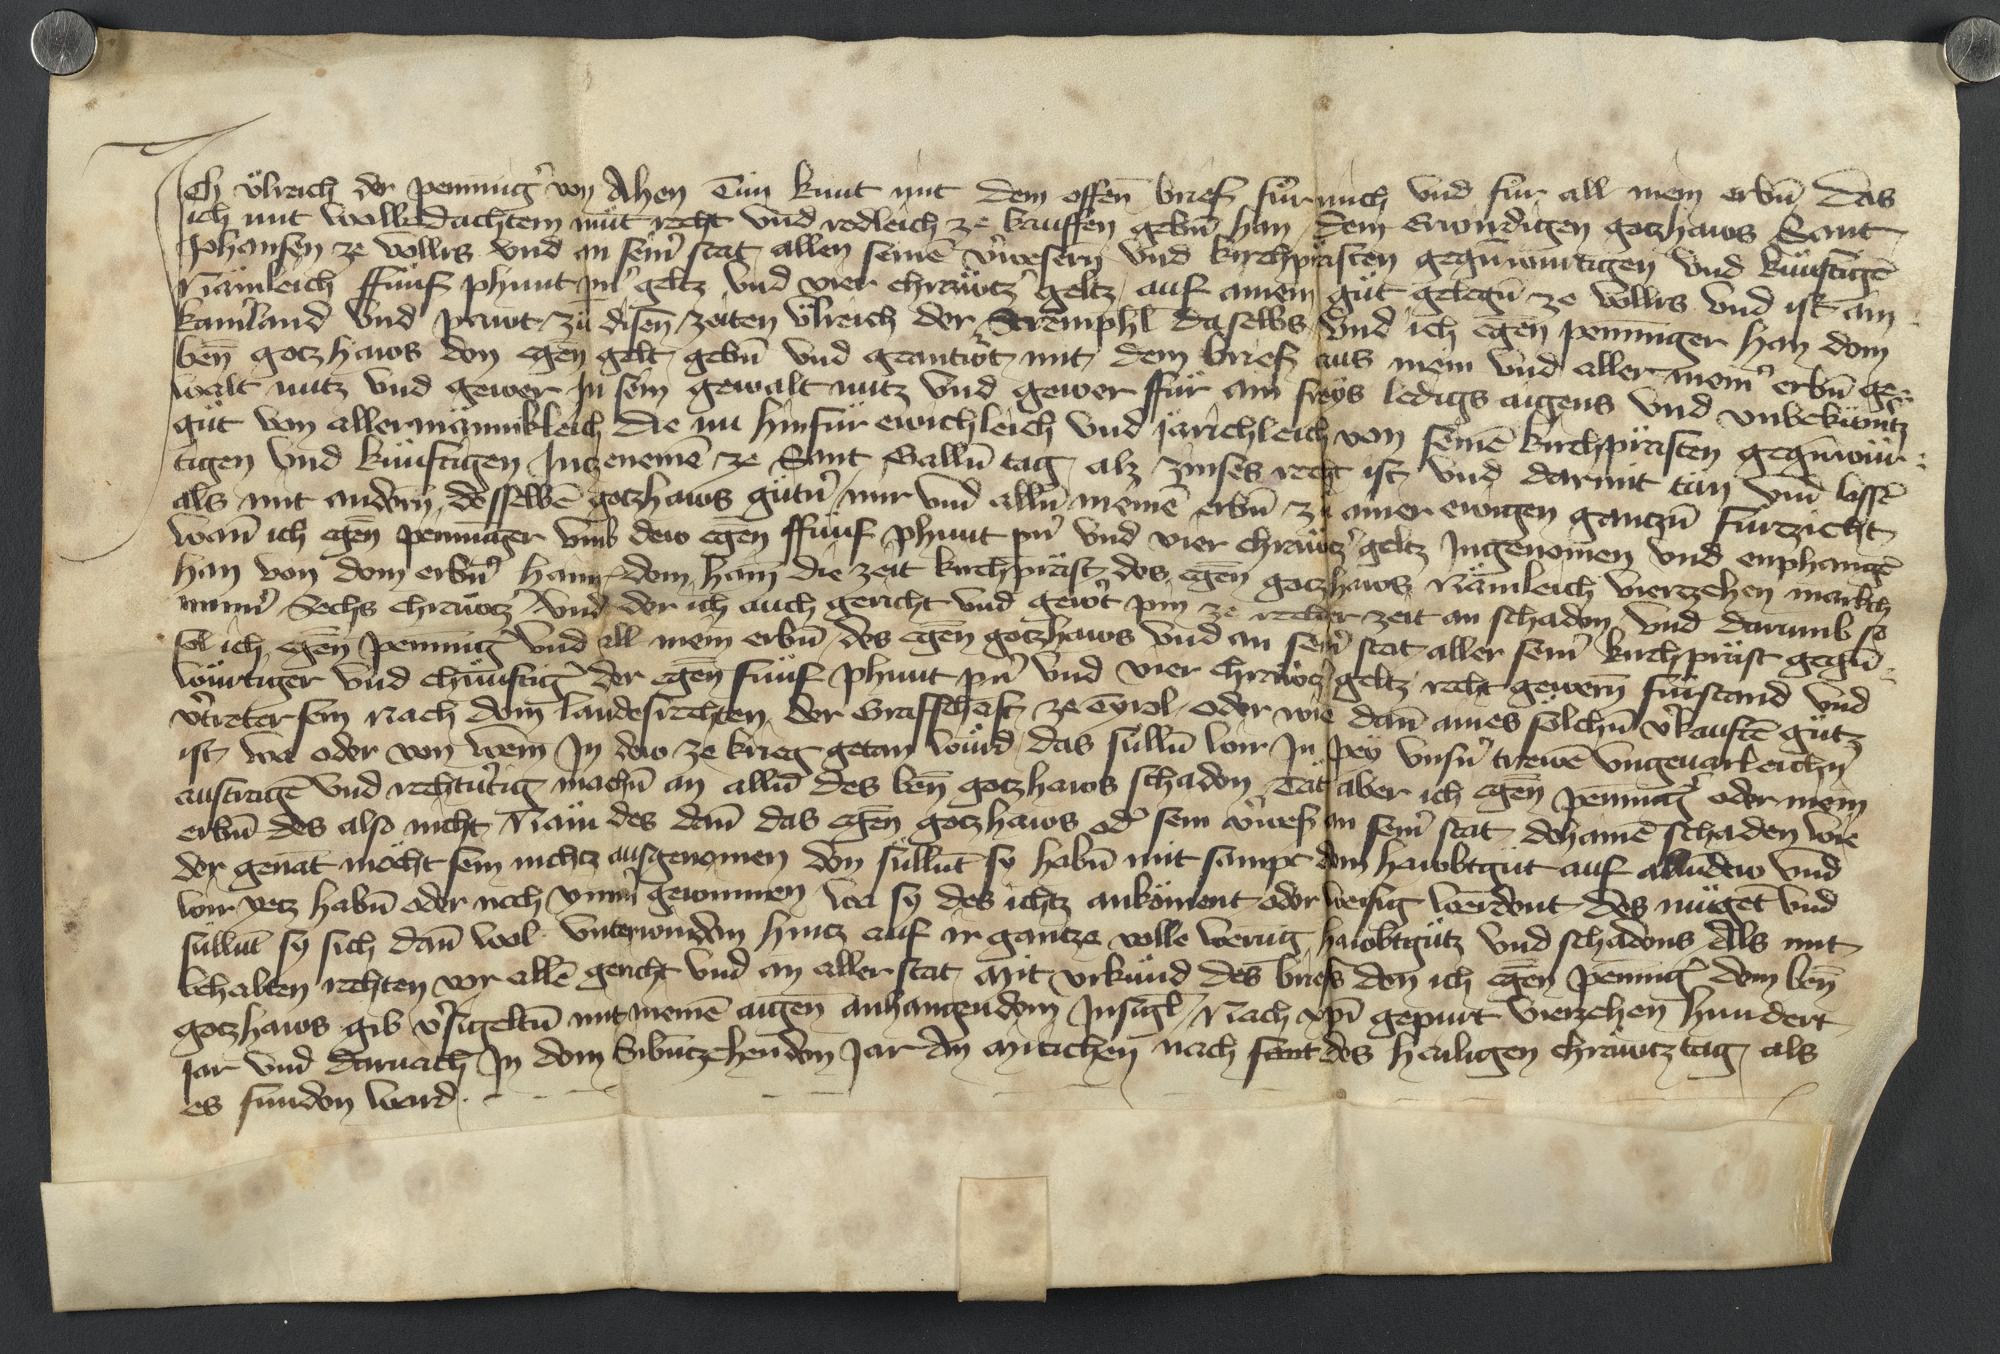 Ich Ůlreich der penninger von Ahen Tůn kunt mit dem offen̄ brief für mich vnd für all mein erbn̄ das
ich mit wolbedachtem můt recht vnd redleich ze kauffen gebn̄ han dem Erwirdigen gotzhaws Sant
Johansen ze vollrs vnd an sein̄ stat allen seinē v̓wesern vnd kirchprästen gegn̄würtigen vnd künftigē
Nämleich ffünf phunt pn̓ geltz vnd vier chräwtz̓ geltz auf ainem gůt gelegn̄ ze vollrs vnd ist ain
kamerland vnd pawt zů disen̄ zeiten Ůlreich der Stremphl daselbs vnd ich egen̄ penninger han dem
ben̄ gotzhaws den egen̄ gelt gebn̄ vnd geantw̓t mit dem brief aus mein vnd aller mein̓ erbn̄ ge
walt nutz vnd gewer In sein gewalt nutz vnd gewer ffür ain freys ledigs aigens vnd vnbekümertz
gůt von allermännikleich die nu hinfür ewichleich vnd järichleich von seinē kirchprästen gegn̄wür
tigen vnd künftigen Inzenemē ze Sant Galln̄ tag alz zinses recht ist vnd darmit tůn vnd lassē
als mit andern desselbē gotzhaws gütn̓ mir vnd alln̄ meinē erbn̄ zů ainer ewigen gantzn̄ fürzicht
wan̄ ich egen̄ penninger vmb dew egen̄ ffünf phunt pn̓ vnd vier chräwtz̓ geltz Ingenomen vnd enphangē
han von dem erbn̓ hainr dem ham die zeit kirchpräst des egen̄ gotzhaws Nämleich vierzehen markch
min̓ Sechs chräwtz̓ vnd der ich auch gericht vnd gew̓t pin ze rechter zeit an schaden vnd darumb so
sol ich egen̄ penning̓ vnd all mein erbn̄ des egen̄ gotzhaws vnd an sein̓ stat aller sein̓ kirchpräst gegn̄
würtiger vnd chünftig̓ der egen̄ fünf phunt pn̓ vnd vier chräwtz̓ geltz recht gewern fürstand vnd
v̓treter sein nach dem landesrechten der Grafscheft ze Tyrol oder wie dan̄ aines sölchn̄ v̓kauftē gůtz
ist wa oder von wem In dew ze krieg getan würd das sülln̄ wir In pey vnsn̓ trewē vngeuarleichn̄
austragē vnd rechtv̓tig machn̄ an alln̄ des ben̄ gotzhaws schaden Tät aber ich egen̄ penning̓ oder mein
erbn̄ des also nicht Näm des dan̄ das egen̄ gotzhaws od̓ sein v̓wes̓ an sein̓ stat dehainē schaden wie
der genāt möcht sein nichtz ausgenomen den süllnt sy habn̄ mit sampt dem hawbtgůt auf alln̄dew vnd
wir yetz habn̄ oder noch ym̄er gewinnen wa sy des ichtz ankoment oder weisig werdent des mügēt vnd
süllnt sy sich dan̄ wol vnterwinden hintz auf ir gantze volle werūg hawbtgůtz vnd schadens Als mit
behalten rechten vor allē gericht vnd an aller stat Mit vrkünd des briefs den ich egen̄ penning̓ dem ben̄
gotzhaws gib v̓sigeltn̄ mit meinē aigen̄ anhangendem Insigl Nach xpī gepurt vierzehen hundert
jar vnd darnach In dem Sibntzehendem Jar An Mitichen nach sant des heiligen chräwtz tag als
es funden ward